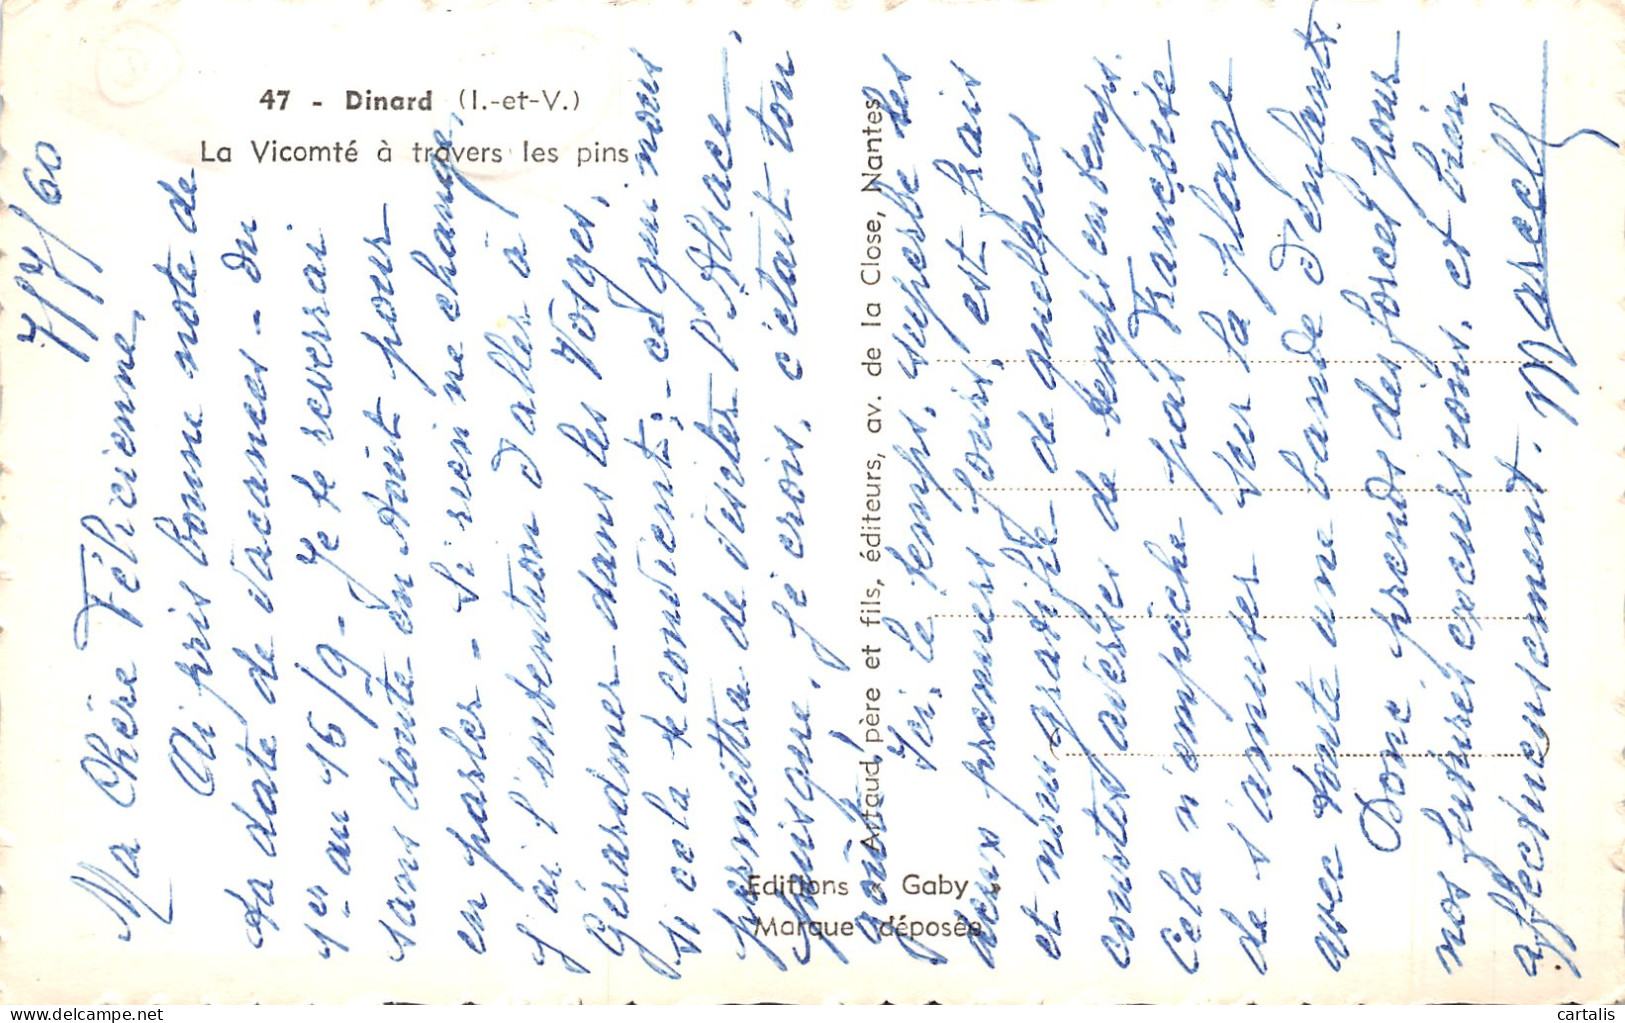 47 - Dinard (I.-et-V.)
La Vicomté à travers les pins
7/7/60
Ma Chère Félicienne,
Ai pris bonne note de
ta date de vacances - du
1er au 15/9 - Je te reverrai
sans doute en août pour
en parler - Si rien ne change,
j'ai l'intention d'aller à
Gérardmer - dans les Vosges,
si cela te convient, - ce qui nous
permettra de visiter l'Alsace,
puisque, je crois, c'était ton
goût!
Ici, le temps, superbe les
deux premiers jours, est frais
et nous gratifie de quelques
courtes averses de temps en temps.
Cela n'empêche pas Françoise
de s'amuser sur la plage
avec toute une bande d'enfants.
Donc, prends des forces pour
nos futures excursions, et bien
affectueusement. Marcelle
Artaud, père et fils, éditeurs, av. de la Close, Nantes
Editions « Gaby »
Marque déposée
cartalis